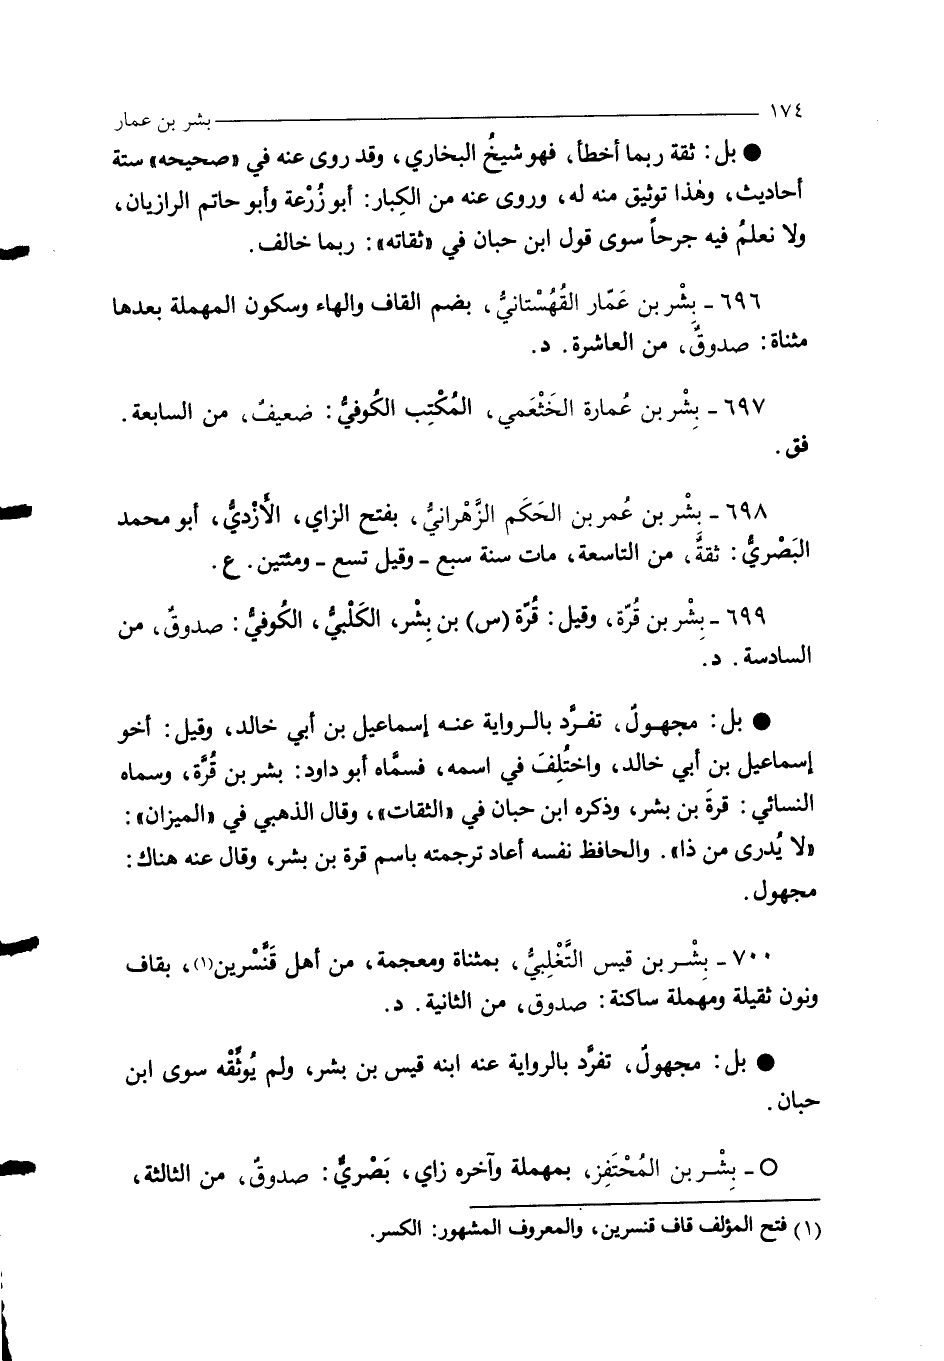 ١٧٤ بشر بن عمار
● بل: ثقة ربما أخطأ، فهو شيخُ البخاري، وقد روى عنه في «صحيحه» ستة
أحاديث، وهٰذا توثيق منه له، وروى عنه من الكِبار: أبو زُرْعة وأبو حاتم الرازيان،
ولا نعلمُ فيه جرحاً سوى قول ابن حبان في «ثقاته»: ربما خالف.
٦٩٦ ـ بِشْر بن عَمّار القُهُسْتانيُّ، بضم القاف والهاء وسكون المهملة بعدها
مثناة: صدوقٌ، من العاشرة. د.
٦٩٧ ـ بِشْر بن عُمارة الخَثْعَمي، المُكْتِب الكُوفيُّ: ضعيفٌ، من السابعة.
فق.
٦٩٨ ـ بِشْر بن عُمر بن الحَكَم الزَّهْرانيُّ، بفتح الزاي، الأَزْديُّ، أبو محمد
البَصْريُّ: ثقةٌ، من التاسعة، مات سنة سبع ـ وقيل تسع ـ ومئتين. ع.
٦٩٩ ـ بِشْر بن قُرّة، وقيل: قُرّة (س) بن بِشْر، الكَلْبيُّ، الكُوفيُّ: صدوقٌ، من
السادسة. د.
● بل: مجهولٌ، تفرَّد بالرواية عنه إسماعيل بن أبي خالد، وقيل: أخو
إسماعيل بن أبي خالد، واختُلِفَ في اسمه، فسمَّاه أبو داود: بشر بن قُرَّة، وسماه
النسائي: قرةَ بن بشر، وذكره ابن حبان في «الثقات»، وقال الذهبي في «الميزان»:
«لا يُدرى من ذا». والحافظ نفسه أعاد ترجمته باسم قرة بن بشر، وقال عنه هناك:
مجهول.
٧٠٠ ـ بِشْر بن قيس التَّغْلِبيُّ، بمثناة ومعجمة، من أهل قَنَّسْرين(١)، بقاف
ونون ثقيلة ومهملة ساكنة: صدوق، من الثانية. د.
● بل: مجهولٌ، تفرَّد بالرواية عنه ابنه قيس بن بشر، ولم يُوثِّقْه سوى ابن
حبان.
○ ـ بِشْر بن المُحْتَفِز، بمهملة وآخره زاي، بَصْريٌّ: صدوقٌ، من الثالثة،
(١) فتح المؤلف قاف قنسرين، والمعروف المشهور: الكسر.